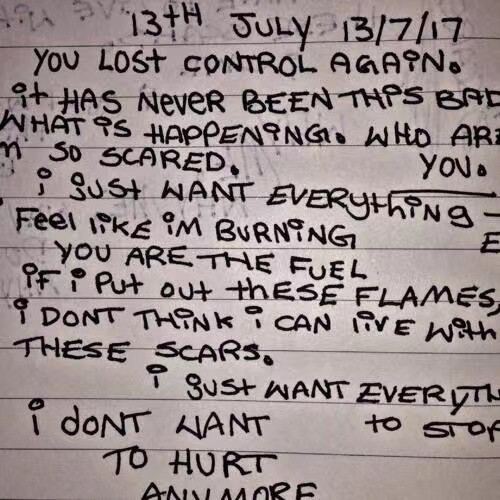 13TH JULY 13/7/17
YOU LOST CONTROL AGAIN.
it HAS NEVER BEEN THIS BAD
WHAT iS HAPPENiNG. WHO ARE
m SO SCARED. YOU.
i just WANT EVERYthiNG -
Feel liKE iM BURNiNG E
YOU ARE THE FUEL
iF i Put out thESE FLAMES,
i DONT THiNK i CAN liVE With
THESE SCARS.
i just WANT EVERYTH
i dONT WANT to STOP
TO HURT
ANYMORE